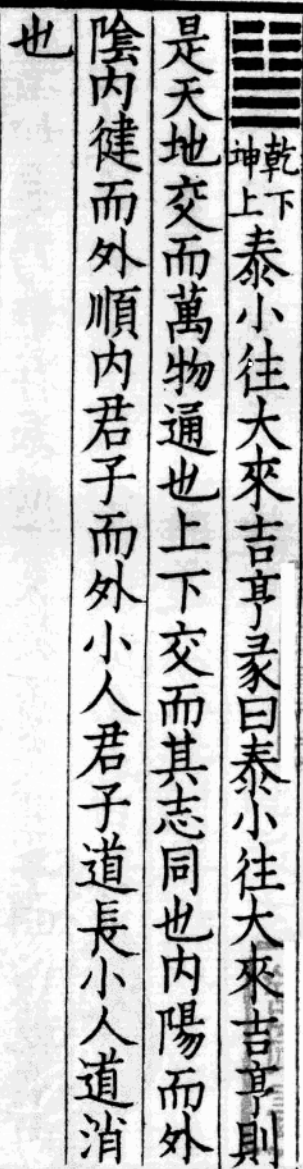 ䷊乾下坤上泰小往大來吉亨彖曰泰小往大來吉亨則
是天地交而萬物通也上下交而其志同也内陽而外
陰内健而外順内君子而外小人君子道長小人道消
也